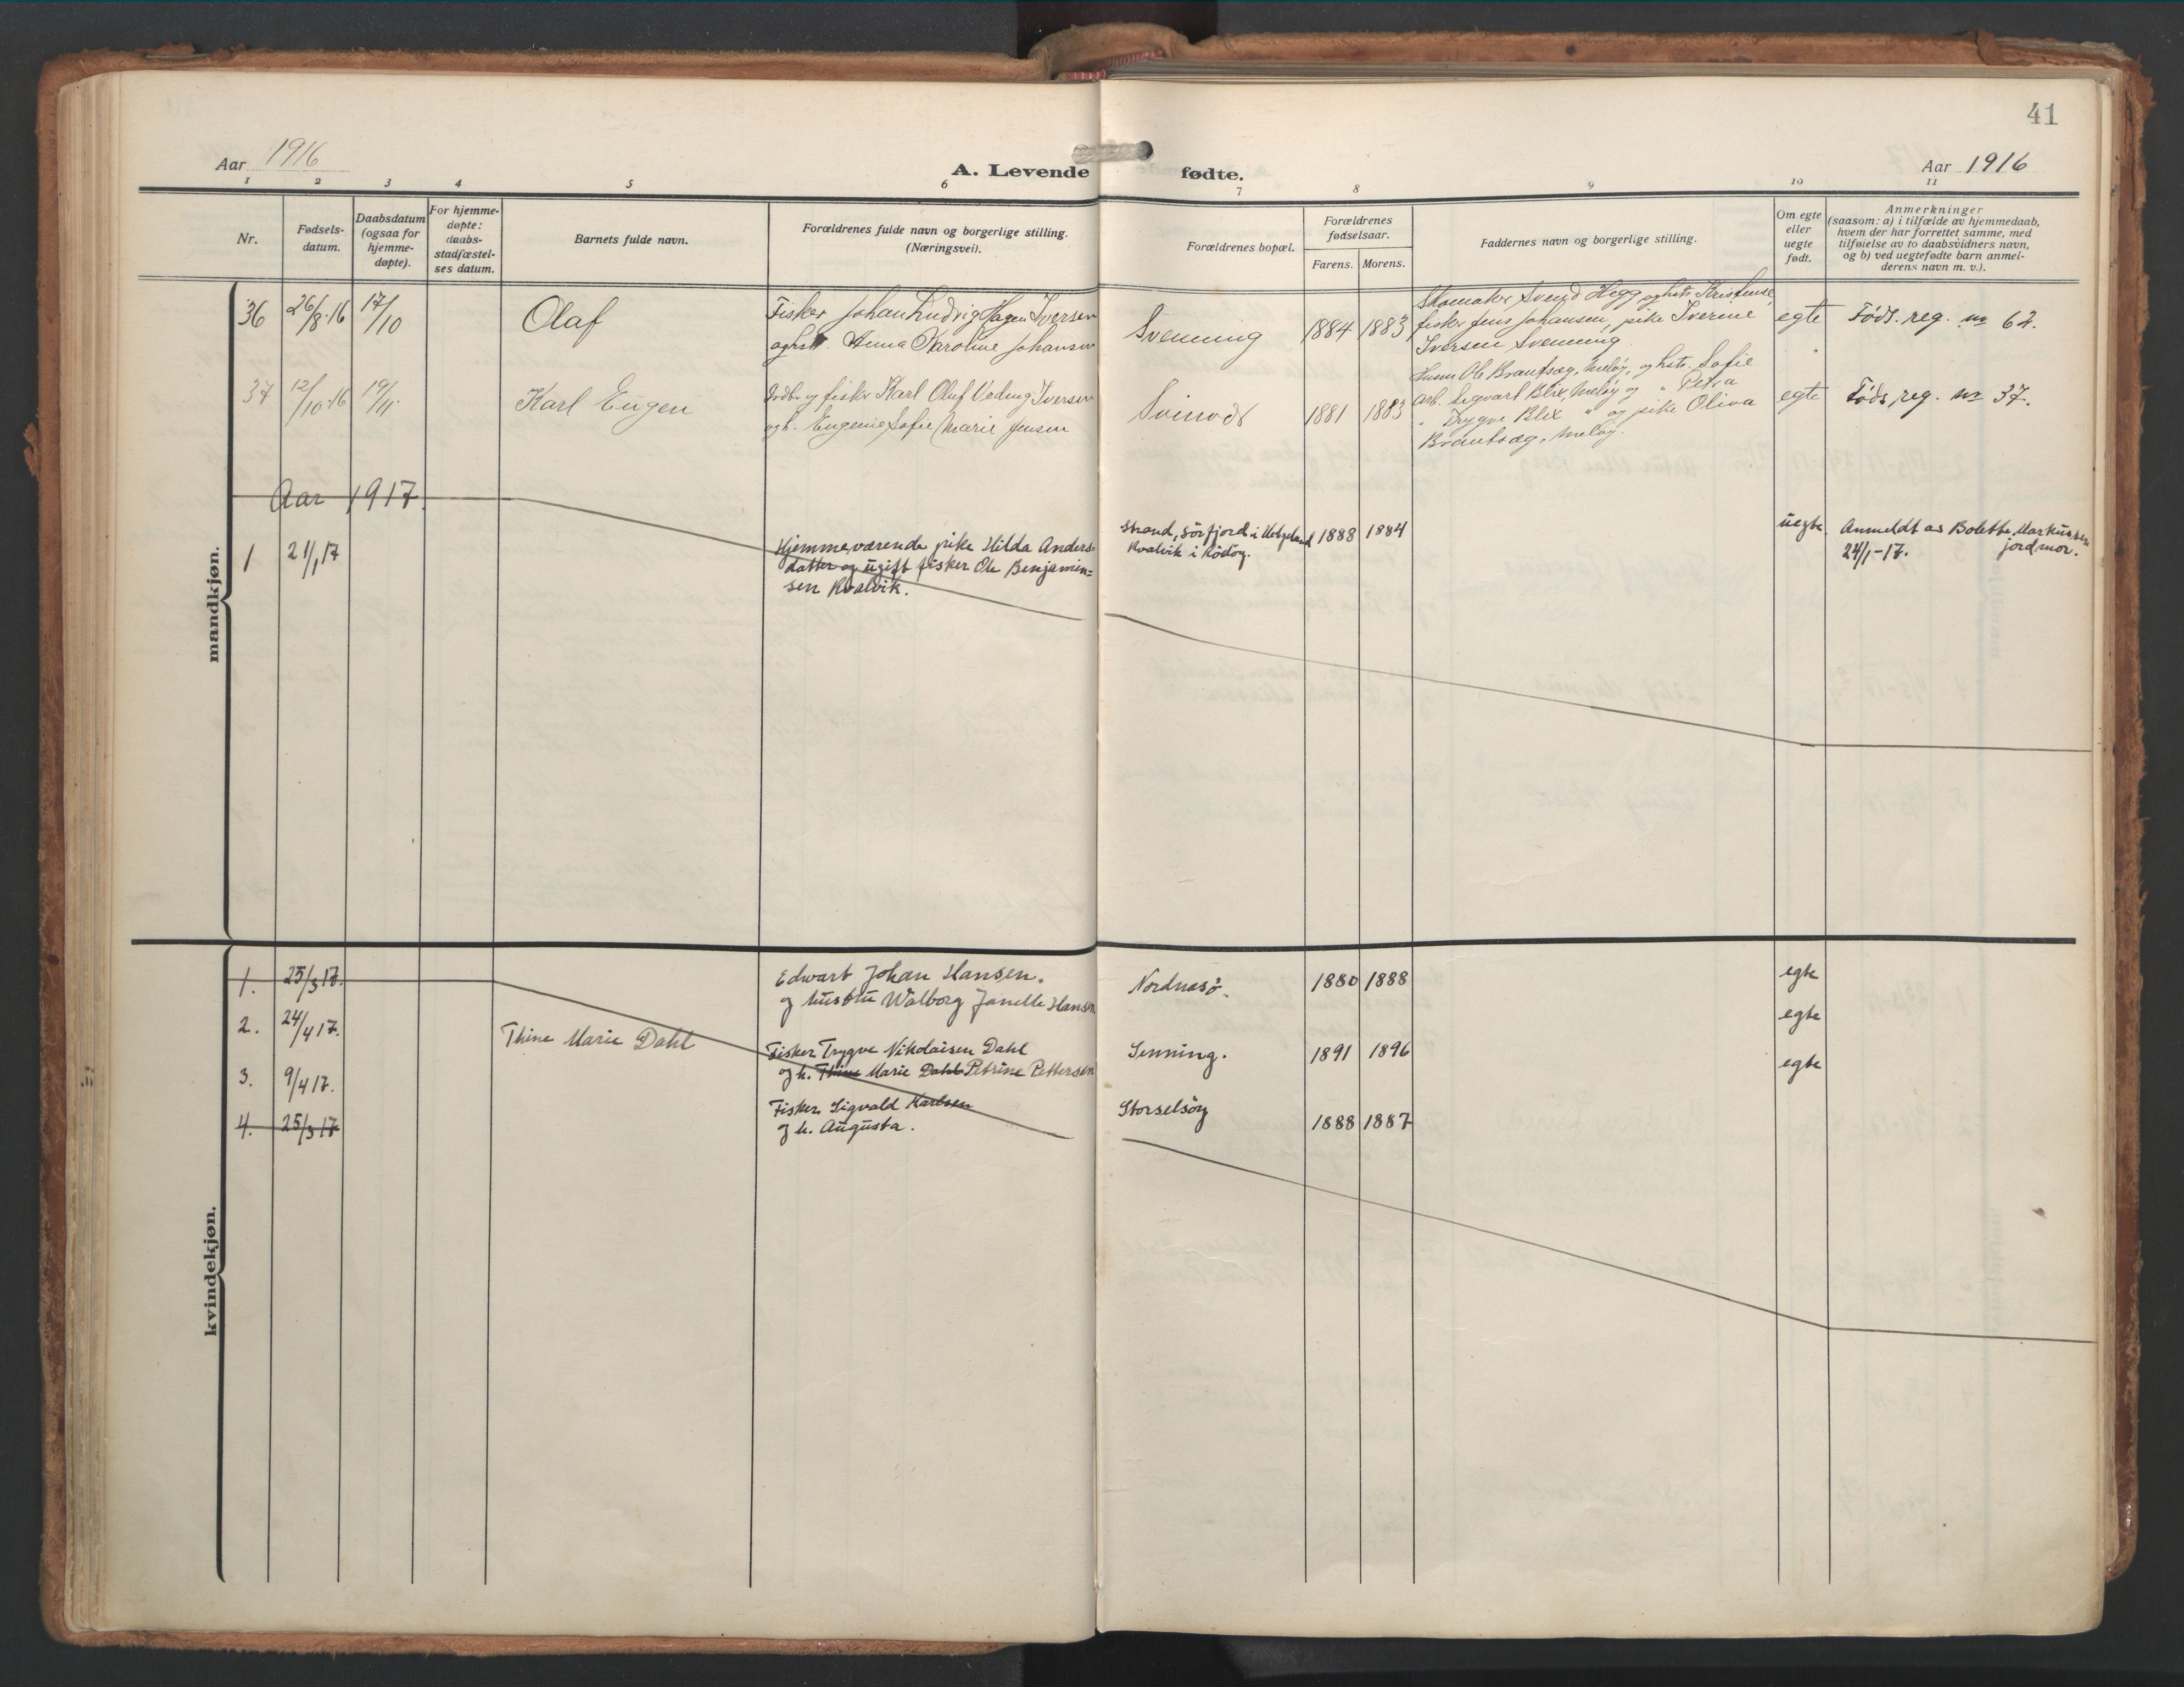 41
Aar 1916
A. Levende fødte.
Aar 1916
1 2 3 4 5 6 7 8 9 10 11
Nr.
Fødsels-
datum.
Daabsdatum
(ogsaa for
hjemme-
døpte).
For hjemme-
døpte:
daabs-
stadfæstel-
ses datum.
Barnets fulde navn.
Forældrenes fulde navn og borgerlige stilling.
(Næringsvei).
Forældrenes bopæl.
Forældrenes
fødselsaar.
Farens. Morens.
Faddernes navn og borgerlige stilling.
Om egte
eller
uegte
født.
Anmerkninger
(saasom: a) i tilfælde av hjemmedaab,
hvem der har forrettet samme, med
tilføielse av to daabsvidners navn,
og b) ved uegtefødte barn anmel-
derens navn m. v.).
mandkjøn.
36 26/8.16 17/10 Olaf
Fisker Johan Ludvig Hagen Iversen
og hstr. Anna Karoline Johansen
Svenning 1884 1883
Skomaker Svend Hegg og hstr. Kristense,
fisker Jens Johansen, pike Iverene
Iversen Svenning
egte Føds. reg. nr 62.
37 12/10.16 19/11. Karl Eugen
Jordbr. og fisker Karl Oluf Veding Iversen
og h. Eugenie Sofie Marie Jensen
Svinvær 1881 1883
Husm Ole Brantsæg, Meløy, og hstr. Sofie
arb. Sigvart Blix, Meløy og " Petra
" Trygve Blix " og pike Oliva
Brantsæg, Meløy.
egte Føds. reg. nr 37.
Aar 1917.
1 21/1 17
Hjemmeværende pike Hilda Anders-
datter og ugift fisker Ole Benjamin=
sen Kvalvik.
Strand, Sörfjord i Helgeland
Kvalvik i Rödöy.
1888 1884
uegte.
Anmeldt av Bolette Markussen
24/1-17. jordmor.
kvindekjøn.
1. 25/3 17.
Edvart Johan Hansen.
og hustru Walborg Janelle Hansen
Nordnæsö. 1880 1888 egte
2. 24/4 17. Thine Marie Dahl
Fisker Trygve Nikolaisen Dahl
og h. Thine Marie Dahl Petrine Pettersen
Senning. 1891 1896 egte
3. 9/4 17.
Fisker Sigvald Karlsen
og h. Augusta.
Storselsöy 1888 1887 egte
4. 25/3 17